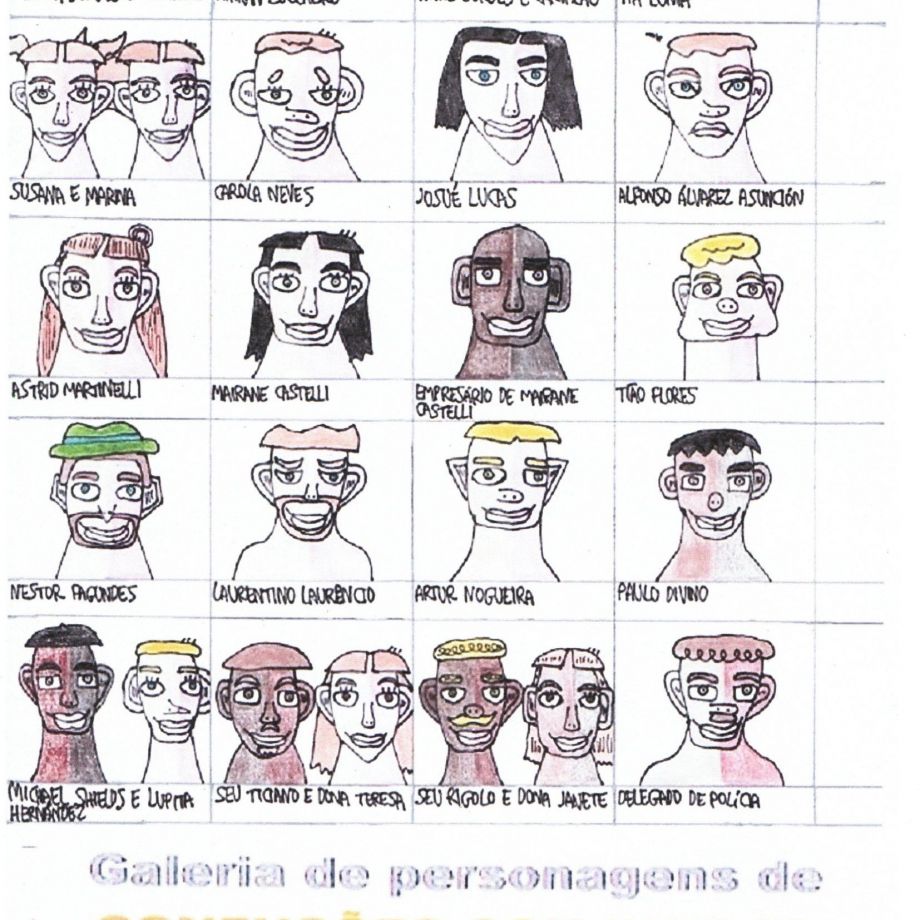 SUSANA E MARINA
CAROLA NEVES
JOSUÉ LUCAS
ALFONSO ÁLVAREZ ASUNCIÓN
ASTRID MARTINELLI
MAIRANE CASTELLI
EMPRESÁRIO DE MAIRANE
CASTELLI
TIÃO FLORES
NESTOR FAGUNDES
LAURENTINO LAURÊNCIO
ARTUR NOGUEIRA
PAULO DIVINO
MICHAEL SHIELDS E LUPITA
HERNÁNDEZ
SEU TICIANO E DONA TERESA
SEU RIGOLO E DONA JANETE
DELEGADO DE POLÍCIA
Galeria de personagens de